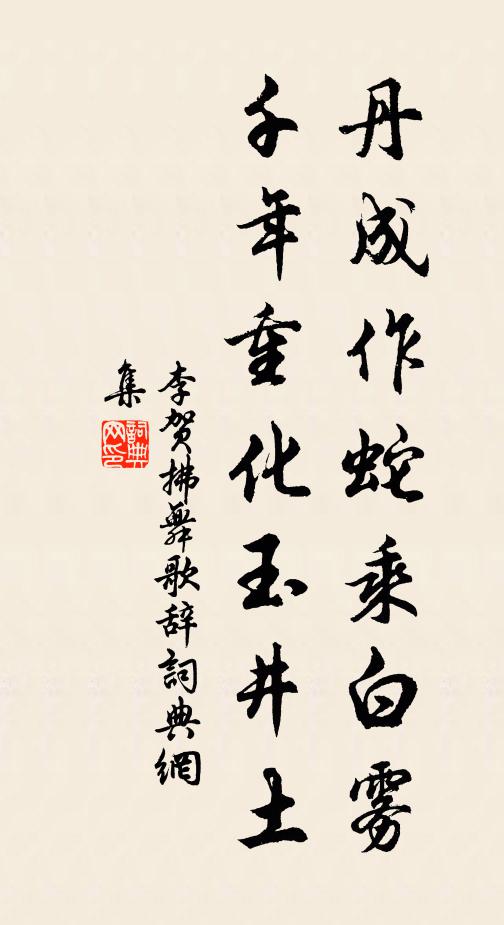 丹成作蛇乘白雾
千年重化玉井土
李贺拂舞歌辞詞典網
集
詞典
网印